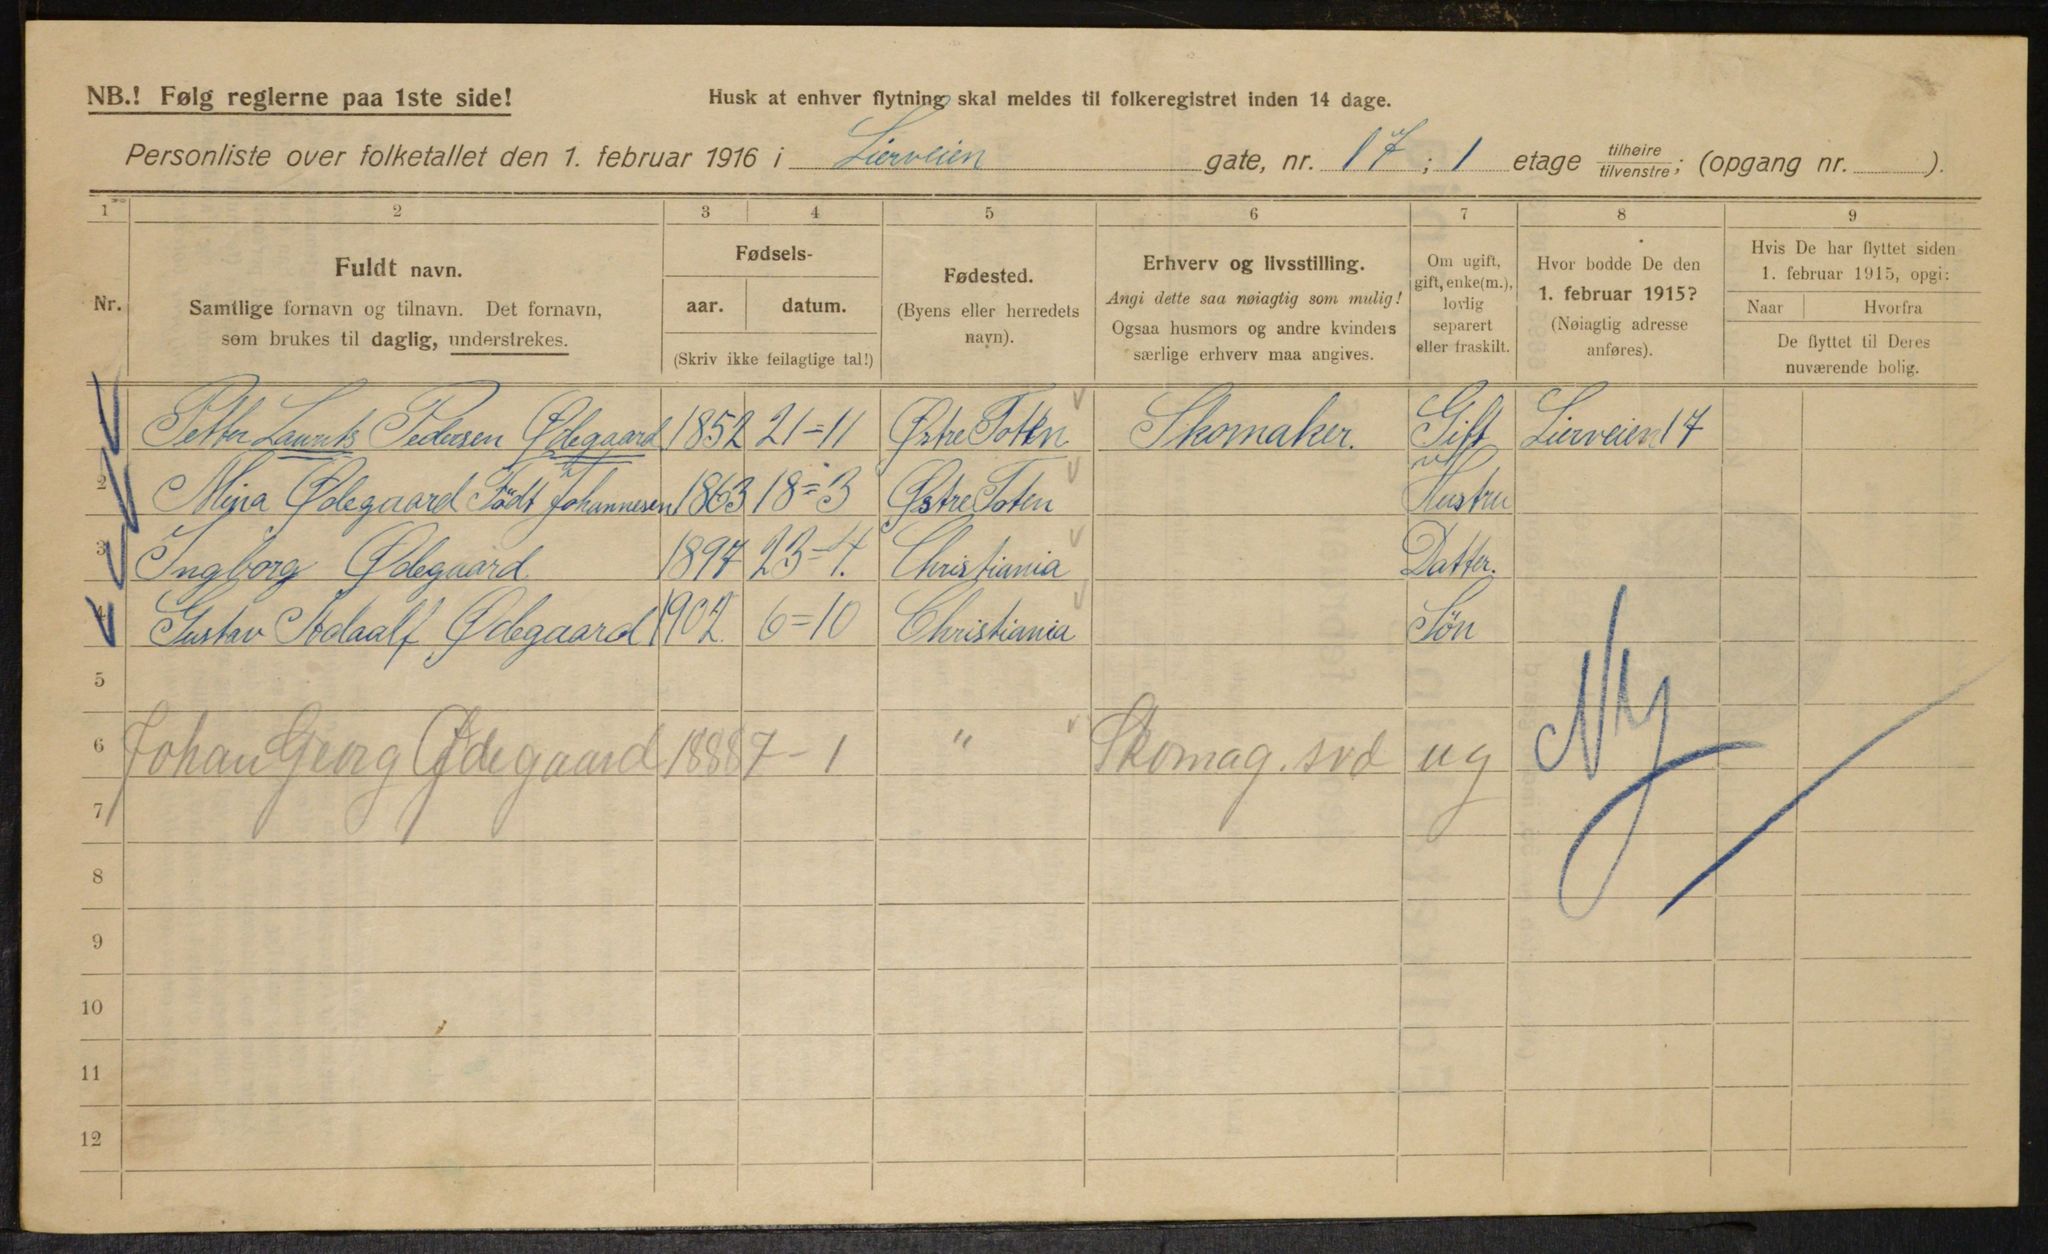 NB.! Følg reglerne paa 1ste side!
Husk at enhver flytning skal meldes til folkeregistret inden 14 dage.
Personliste over folketallet den 1. februar 1916 i Lierveien gate, nr. 17 ; 1 etage tilhøire/tilvenstre; (opgang nr. ).
1 2 3 4 5 6 7 8 9
Nr.
Fuldt navn.
Samtlige fornavn og tilnavn. Det fornavn,
som brukes til daglig, understrekes.
Fødsels-
aar. datum.
(Skriv ikke feilagtige tal!)
Fødested.
(Byens eller herredets
navn).
Erhverv og livsstilling.
Angi dette saa nøiagtig som mulig!
Ogsaa husmors og andre kvinders
særlige erhverv maa angives.
Om ugift,
gift, enke(m.),
lovlig
separert
eller fraskilt.
Hvor bodde De den
1. februar 1915?
(Nøiagtig adresse
anføres).
Hvis De har flyttet siden
1. februar 1915, opgi:
Naar Hvorfra
De flyttet til Deres
nuværende bolig.
Petter Laurits Pedersen Ødegaard 1852 21=11 Østre Toten Skomaker. Gift Lierveien 17
2 Mina Ødegaard Födt Johannesen 1863 18=3 Østre Toten Hustru
3 Ingborg Ødegaard 1897 23=4. Christiania Datter.
4 Gustav Adaalf Ødegaard 1902. 6=10 Christiania Søn
5
6 Johan Georg Ødegaard 1888 7-1 " Skomag. svd ug Ny
7
8
9
10
11
12